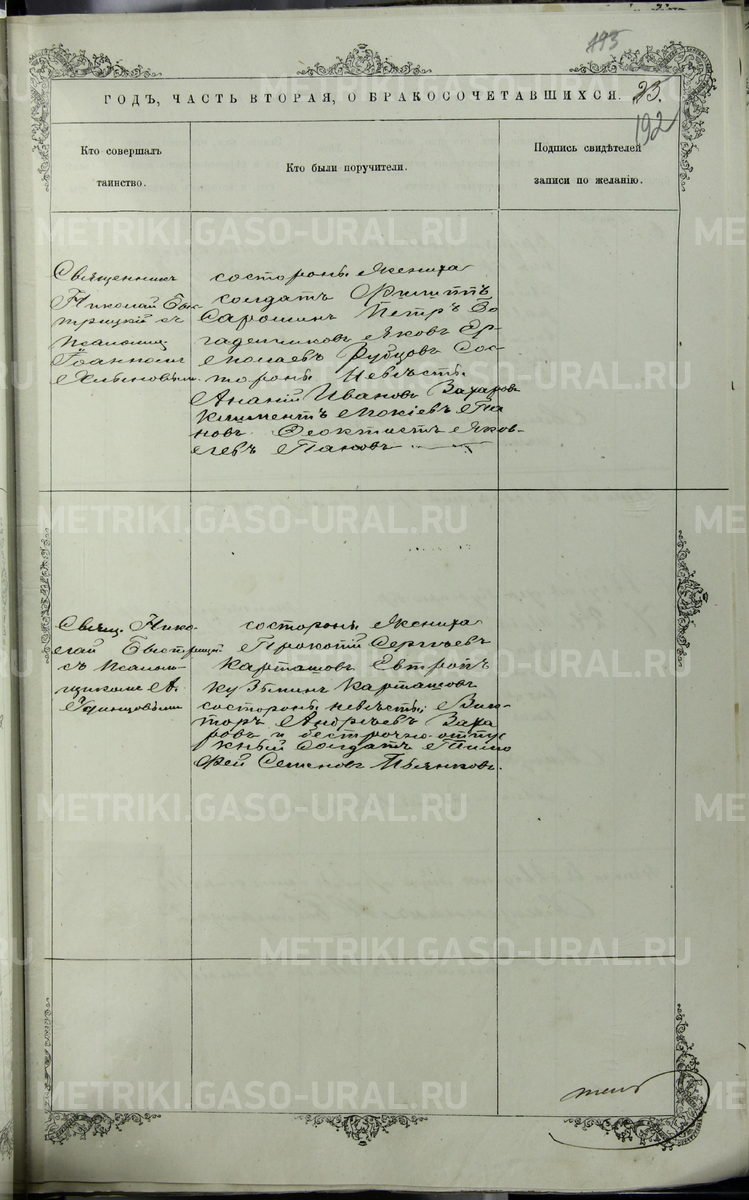 193
ГОДЪ, ЧАСТЬ ВТОРАЯ, О БРАКОСОЧЕТАВШИХСЯ.
23.
192
Кто совершалъ
таинство.
Кто были поручители.
Подпись свидѣтелей
записи по желанію.
Священникъ
Николай Быс-
трицкій съ
Псаломщ
Іоанномъ
состороны Жениха
солдатъ Филиппъ
Петръ Бо
гаденниковъ Яковъ Ер
молаевъ Рубцовъ Сос-
тороны Невѣсты
Ананій Ивановъ Захаровъ
Климентъ Мокіевъ Па
новъ Феоктистъ Яков-
левъ Пановъ
Свящ. Нико-
лай Быстрицкій
съ Псалом-
щикомъ А.
Одинцовымъ
состороны Жениха
Прокопій Сергѣевъ
Карташовъ Евтропъ
Кузьминъ Карташовъ
состороны невѣсты Вик-
торъ Андрѣевъ Заха
ровъ и безсрочно-отпу
кный солдатъ Тимо
фей Семеновъ Пьянковъ.
METRIKI.GASO-URAL.RU